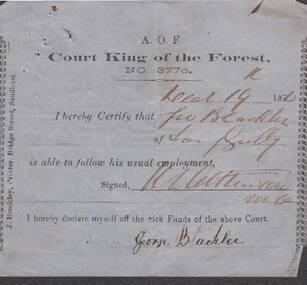 A. O. F.
Court King of the Forest,
NO. 3770.
187
I hereby Certify that Geo Blackler
of
is able to follow his usual employment,
Signed,
I hereby declare myself off the Sick Funds of the above Court.
George Blackler
Printer, Bridge Street, Sandhurst.